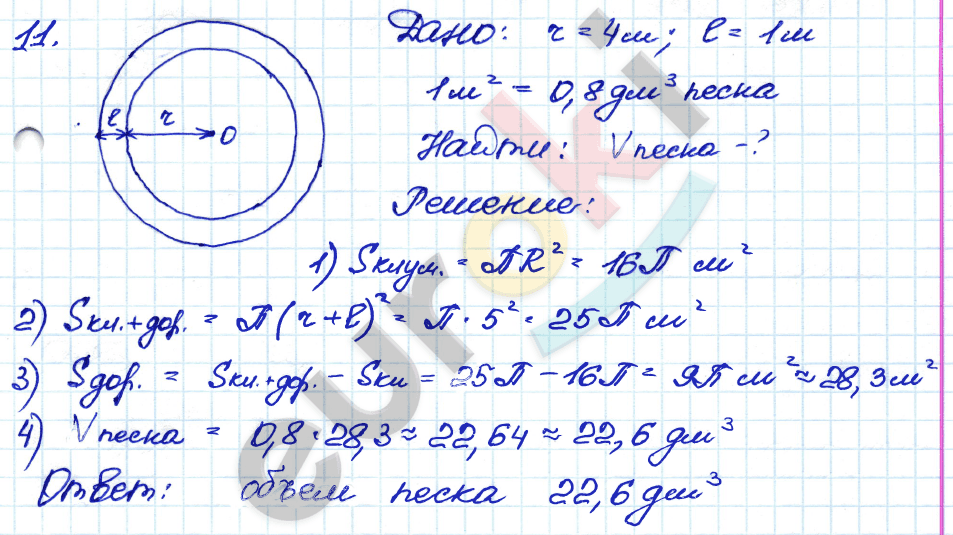 11.
Дано: r = 4м; l = 1м
1м² = 0,8 дм³ песка
l r O
Найти: V песка - ?
Решение:
1) Sклум. = ПR² = 16П м²
2) Sкл.+дор. = П(r+l)² = П·5² = 25П м²
3) Sдор. = Sкл.+дор. - Sкл = 25П - 16П = 9П м² ≈ 28,3м²
4) V песка = 0,8·28,3 ≈ 22,64 ≈ 22,6 дм³
Ответ: объем песка 22,6 дм³
euroki